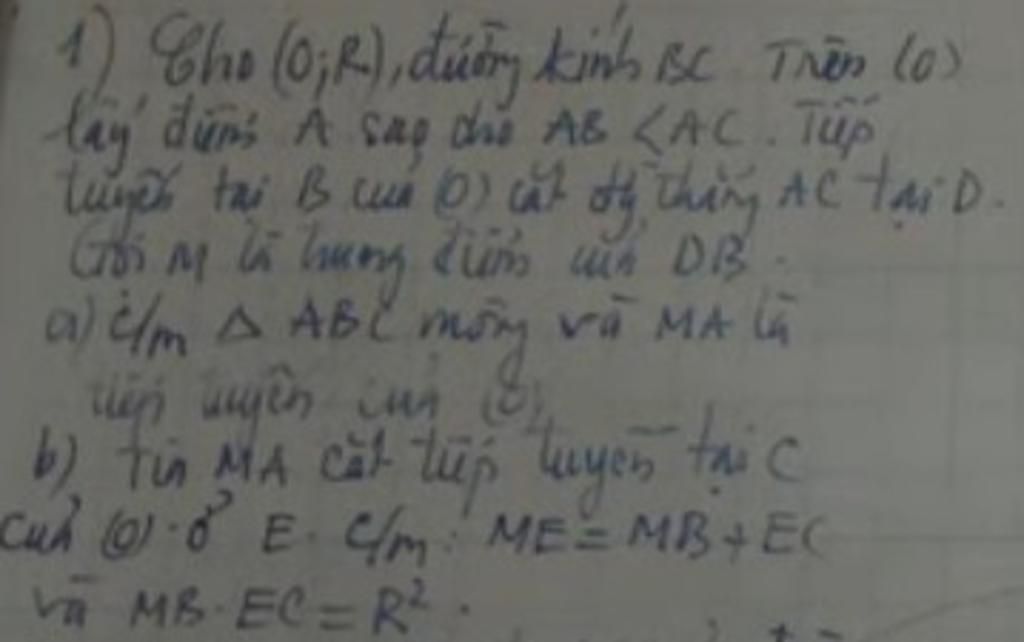 1) Cho (O;R), đường kính BC. Trên (O)
lấy điểm A sao cho AB < AC. Tiếp
tuyến tại B của (O) cắt đg thẳng AC tại D.
Gọi M là trung điểm của DB.
a) C/m Δ ABC vuông và MA là
tiếp tuyến của (O)
b) Tia MA cắt tiếp tuyến tại C
của (O) ở E. C/m: ME = MB + EC
và MB.EC = R².